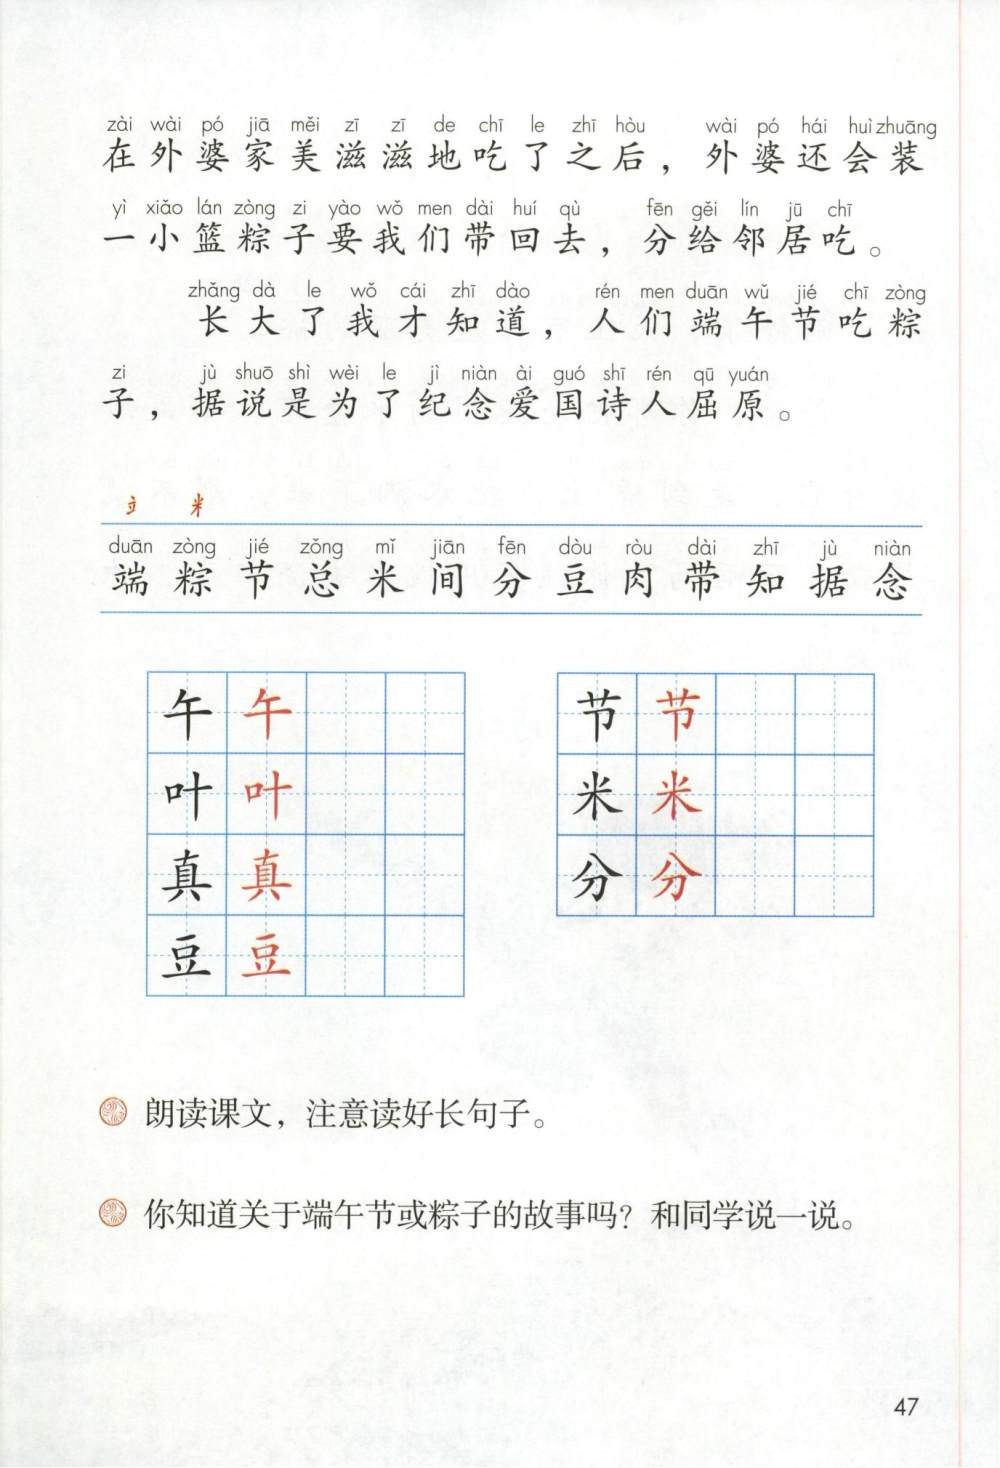 zài wài pó jiā měi zī zī de chī le zhī hòu wài pó hái huì zhuāng
在外婆家美滋滋地吃了之后，外婆还会装
yì xiǎo lán zòng zi yào wǒ men dài huí qù fēn gěi lín jū chī
一小篮粽子要我们带回去，分给邻居吃。
zhǎng dà le wǒ cái zhī dào rén men duān wǔ jié chī zòng
长大了我才知道，人们端午节吃粽
zi jù shuō shì wèi le jì niàn ài guó shī rén qū yuán
子，据说是为了纪念爱国诗人屈原。
立 米
duān zòng jié zǒng mǐ jiān fēn dòu ròu dài zhī jù niàn
端 粽 节 总 米 间 分 豆 肉 带 知 据 念
午 午 节 节
叶 叶 米 米
真 真 分 分
豆 豆
朗读课文，注意读好长句子。
你知道关于端午节或粽子的故事吗？和同学说一说。
47